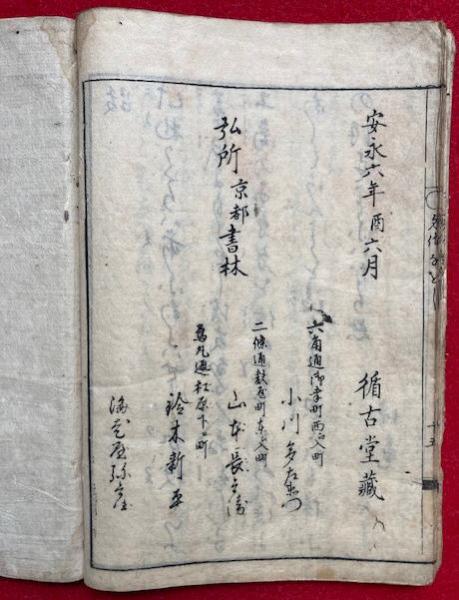 安永六年酉六月
循古堂藏
弘所 京都書林
六角通御幸町西へ入町
小川多左衛門
二條通麩屋町東へ入町
山本長兵衛
烏丸通松原下ル町
鈴木新平
海老屋弥